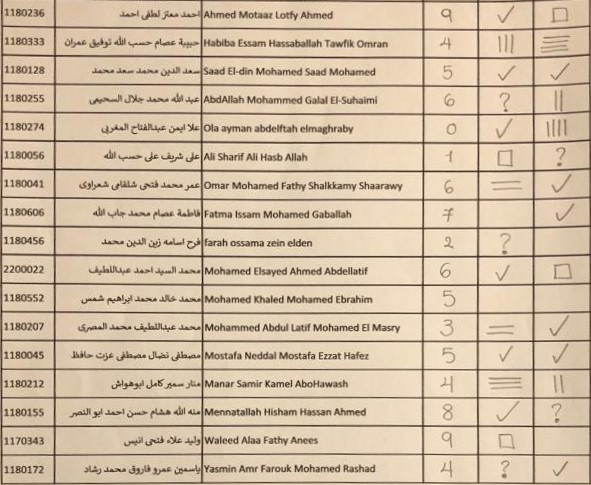 1180236 احمد معتز لطفى احمد Ahmed Motaaz Lotfy Ahmed 9 ✓ □
1180333 حبيبة عصام حسب الله توفيق عمران Habiba Essam Hassaballah Tawfik Omran 4 ||| ☰
1180128 سعد الدين محمد سعد محمد Saad El-din Mohamed Saad Mohamed 5 ✓ ✓
1180255 عبد الله محمد جلال السحيمى AbdAllah Mohammed Galal El-Suhaimi 6 ? ||
1180274 علا ايمن عبدالفتاح المغربى Ola ayman abdelftah elmaghraby 0 ✓ ||||
1180056 على شريف على حسب الله Ali Sharif Ali Hasb Allah 1 □ ?
1180041 عمر محمد فتحى شلقامى شعراوى Omar Mohamed Fathy Shalkkamy Shaarawy 6 = ✓
1180606 فاطمة عصام محمد جاب الله Fatma Issam Mohamed Gaballah 7 ✓
1180456 فرح اسامه زين الدين محمد farah ossama zein elden 2 ?
2200022 محمد السيد احمد عبداللطيف Mohamed Elsayed Ahmed Abdellatif 6 ✓ □
1180552 محمد خالد محمد ابراهيم شمس Mohamed Khaled Mohamed Ebrahim 5
1180207 محمد عبداللطيف محمد المصرى Mohammed Abdul Latif Mohamed El Masry 3 = ✓
1180045 مصطفى نضال مصطفى عزت حافظ Mostafa Neddal Mostafa Ezzat Hafez 5 ✓ ✓
1180212 منار سمير كامل ابوهواش Manar Samir Kamel AboHawash 4 ☰ ||
1180155 منه الله هشام حسن احمد ابو النصر Mennatallah Hisham Hassan Ahmed 8 ✓ ?
1170343 وليد علاء فتحى انيس Waleed Alaa Fathy Anees 9 □
1180172 ياسمين عمرو فاروق محمد رشاد Yasmin Amr Farouk Mohamed Rashad 4 ? ✓